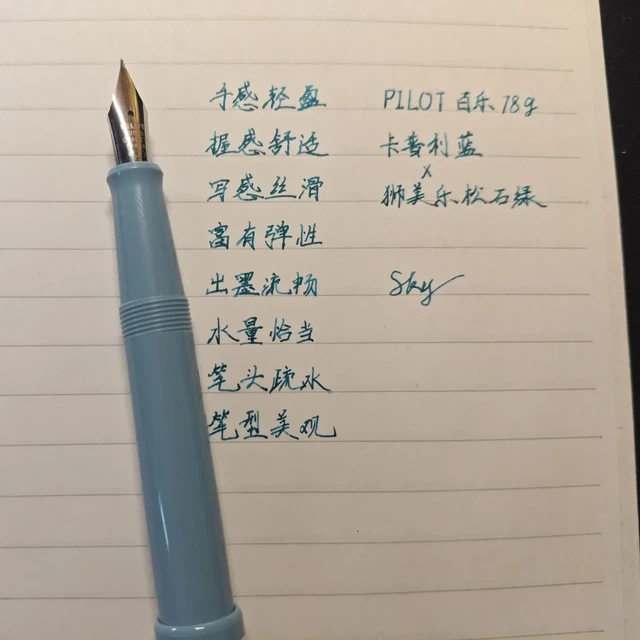 手感轻盈
握感舒适
写感丝滑
富有弹性
出墨流畅
水量恰当
笔头疏水
笔型美观
PILOT 百乐 78g
卡普利蓝
x
狮美乐松石绿
Sky